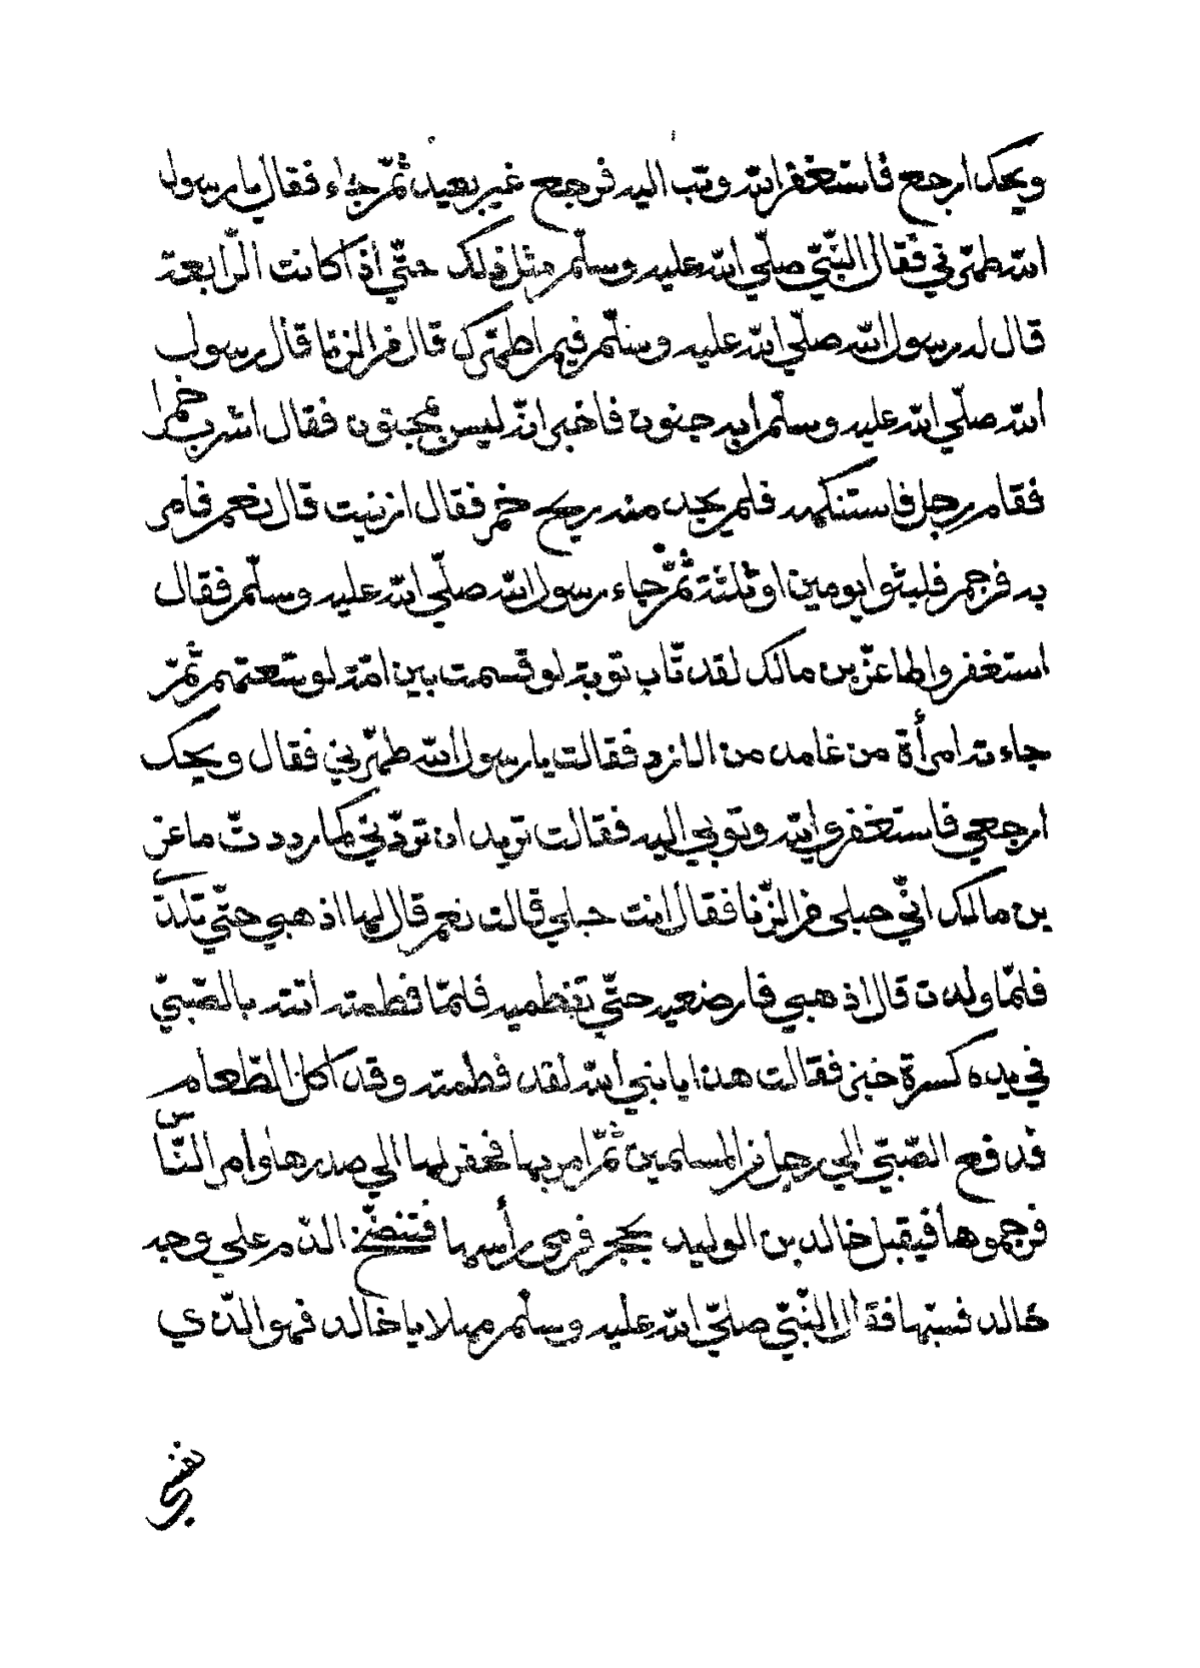 ويحك ارجع فاستغفر الله وتب اليه فرجع غير بعيد ثمّ جاء فقال يا رسول
الله طهّرني فقال النّبيّ صلّي الله عليه وسلّم مثل ذلك حتّي اذا كانت الرّابعة
قال له رسول الله صلّي الله عليه وسلّم فيم اطهّرك قال من الزنا قال رسول
الله صلّي الله عليه وسلّم ابه جنون فاخبر انّه ليس بمجنون فقال اشرب خمرا
فقام رجل فاستنكهه فلم يجد منه ريح خمر فقال ازنيت قال نعم فامر
به فرجم فلبثوا يومين او ثلثة ثمّ جاء رسول الله صلّي الله عليه وسلّم فقال
استغفروا لماعز بن مالك لقد تاب توبة لو قسمت بين امّة لوسعتهم ثمّ
جاءته امرأة من غامد من الازد فقالت يا رسول الله طهّرني فقال ويحك
ارجعي فاستغفري الله وتوبي اليه فقالت تريد ان تردّني كما رددتّ ماعز
بن مالك انّي حبلى من الزّنا فقال انت حبلي قالت نعم قال لها اذهبي حتّي تلدن
فلمّا ولدت قال اذهبي فارضعيه حتّي تفطميه فلمّا فطمته اتته بالصّبيّ
في يده كسرة خبز فقالت هذا يا نبي الله لقد فطمته وقد اكل الطّعام
فدفع الصّبيّ الي رجل من المسلمين ثمّ امر بها فحفر لها الي صدرها وامر النّاس
فرجموها فيقبل خالد بن الوليد بحجر فرمى رأسها فتنضّخ الدّم علي وجه
خالد فسبّها فقال النّبيّ صلّي الله عليه وسلّم مهلا يا خالد فهو الّذي
نفسي